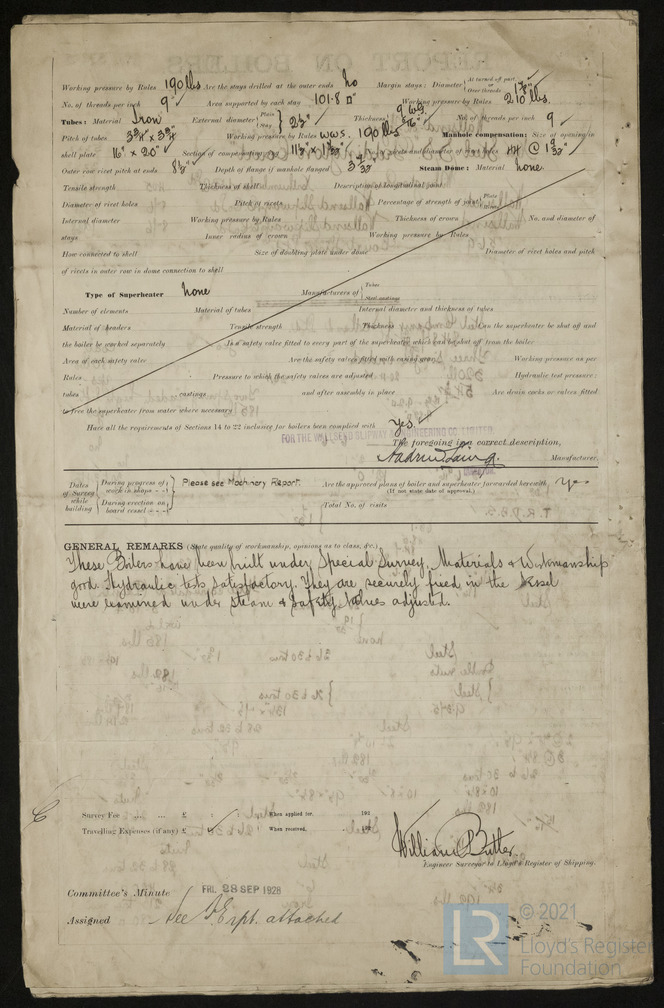 Working pressure by Rules 190 lbs Are the stays drilled at the outer ends No Margin stays: Diameter { At turned off part, or Over threads
No. of threads per inch 9 Area supported by each stay 101·8 □" Working pressure by Rules 210 lbs.
Tubes: Material Iron External diameter { Plain Stay 2½" Thickness { No. of threads per inch 9
Pitch of tubes 3¾" x 3¾" Working pressure by Rules W.O.S. 190 lbs Manhole compensation: Size of opening in
shell plate 16" x 20" Section of compensating ring No. of rivets and diameter of rivet holes
Outer row rivet pitch at ends 8½" Depth of flange if manhole flanged Steam Dome: Material None.
Tensile strength Thickness of shell Description of longitudinal joint
Diameter of rivet holes Pitch of rivets Percentage of strength of joint { Plate Rivets
Internal diameter Working pressure by Rules Thickness of crown No. and diameter of
stays Inner radius of crown Working pressure by Rules
How connected to shell Size of doubling plate under dome Diameter of rivet holes and pitch
of rivets in outer row in dome connection to shell
Type of Superheater None Manufacturers of { Tubes Steel castings
Number of elements Material of tubes Internal diameter and thickness of tubes
Material of headers Tensile strength Thickness Can the superheater be shut off and
the boiler be worked separately Is a safety valve fitted to every part of the superheater which can be shut off from the boiler
Area of each safety valve Are the safety valves fitted with easing gear Working pressure as per
Rules Pressure to which the safety valves are adjusted Hydraulic test pressure:
tubes castings and after assembly in place Are drain cocks or valves fitted
to free the superheater from water where necessary
Have all the requirements of Sections 14 to 22 inclusive for boilers been complied with Yes
FOR THE WALLSEND SLIPWAY & ENGINEERING CO. LIMITED
The foregoing is a correct description,
Andrew Laing. Manufacturer.
DIRECTOR
Dates of Survey while building { During progress of work in shops - - { During erection on board vessel - - - } Please see Machinery Report. Are the approved plans of boiler and superheater forwarded herewith Yes
(If not state date of approval.)
Total No. of visits
GENERAL REMARKS (State quality of workmanship, opinions as to class, &c.)
These Boilers have been built under Special Survey. Materials & Workmanship
good. Hydraulic tests satisfactory. They are securely fixed in the vessel
were examined under steam & Safety Valves adjusted.
Survey Fee ... ... £ : : When applied for, 192
Travelling Expenses (if any) £ : : When received, 192
William Butler
Engineer Surveyor to Lloyd's Register of Shipping.
Committee's Minute FRI. 28 SEP 1928
Assigned See F.E. rpt. attached
© 2021
LR
Lloyd's Register
Foundation